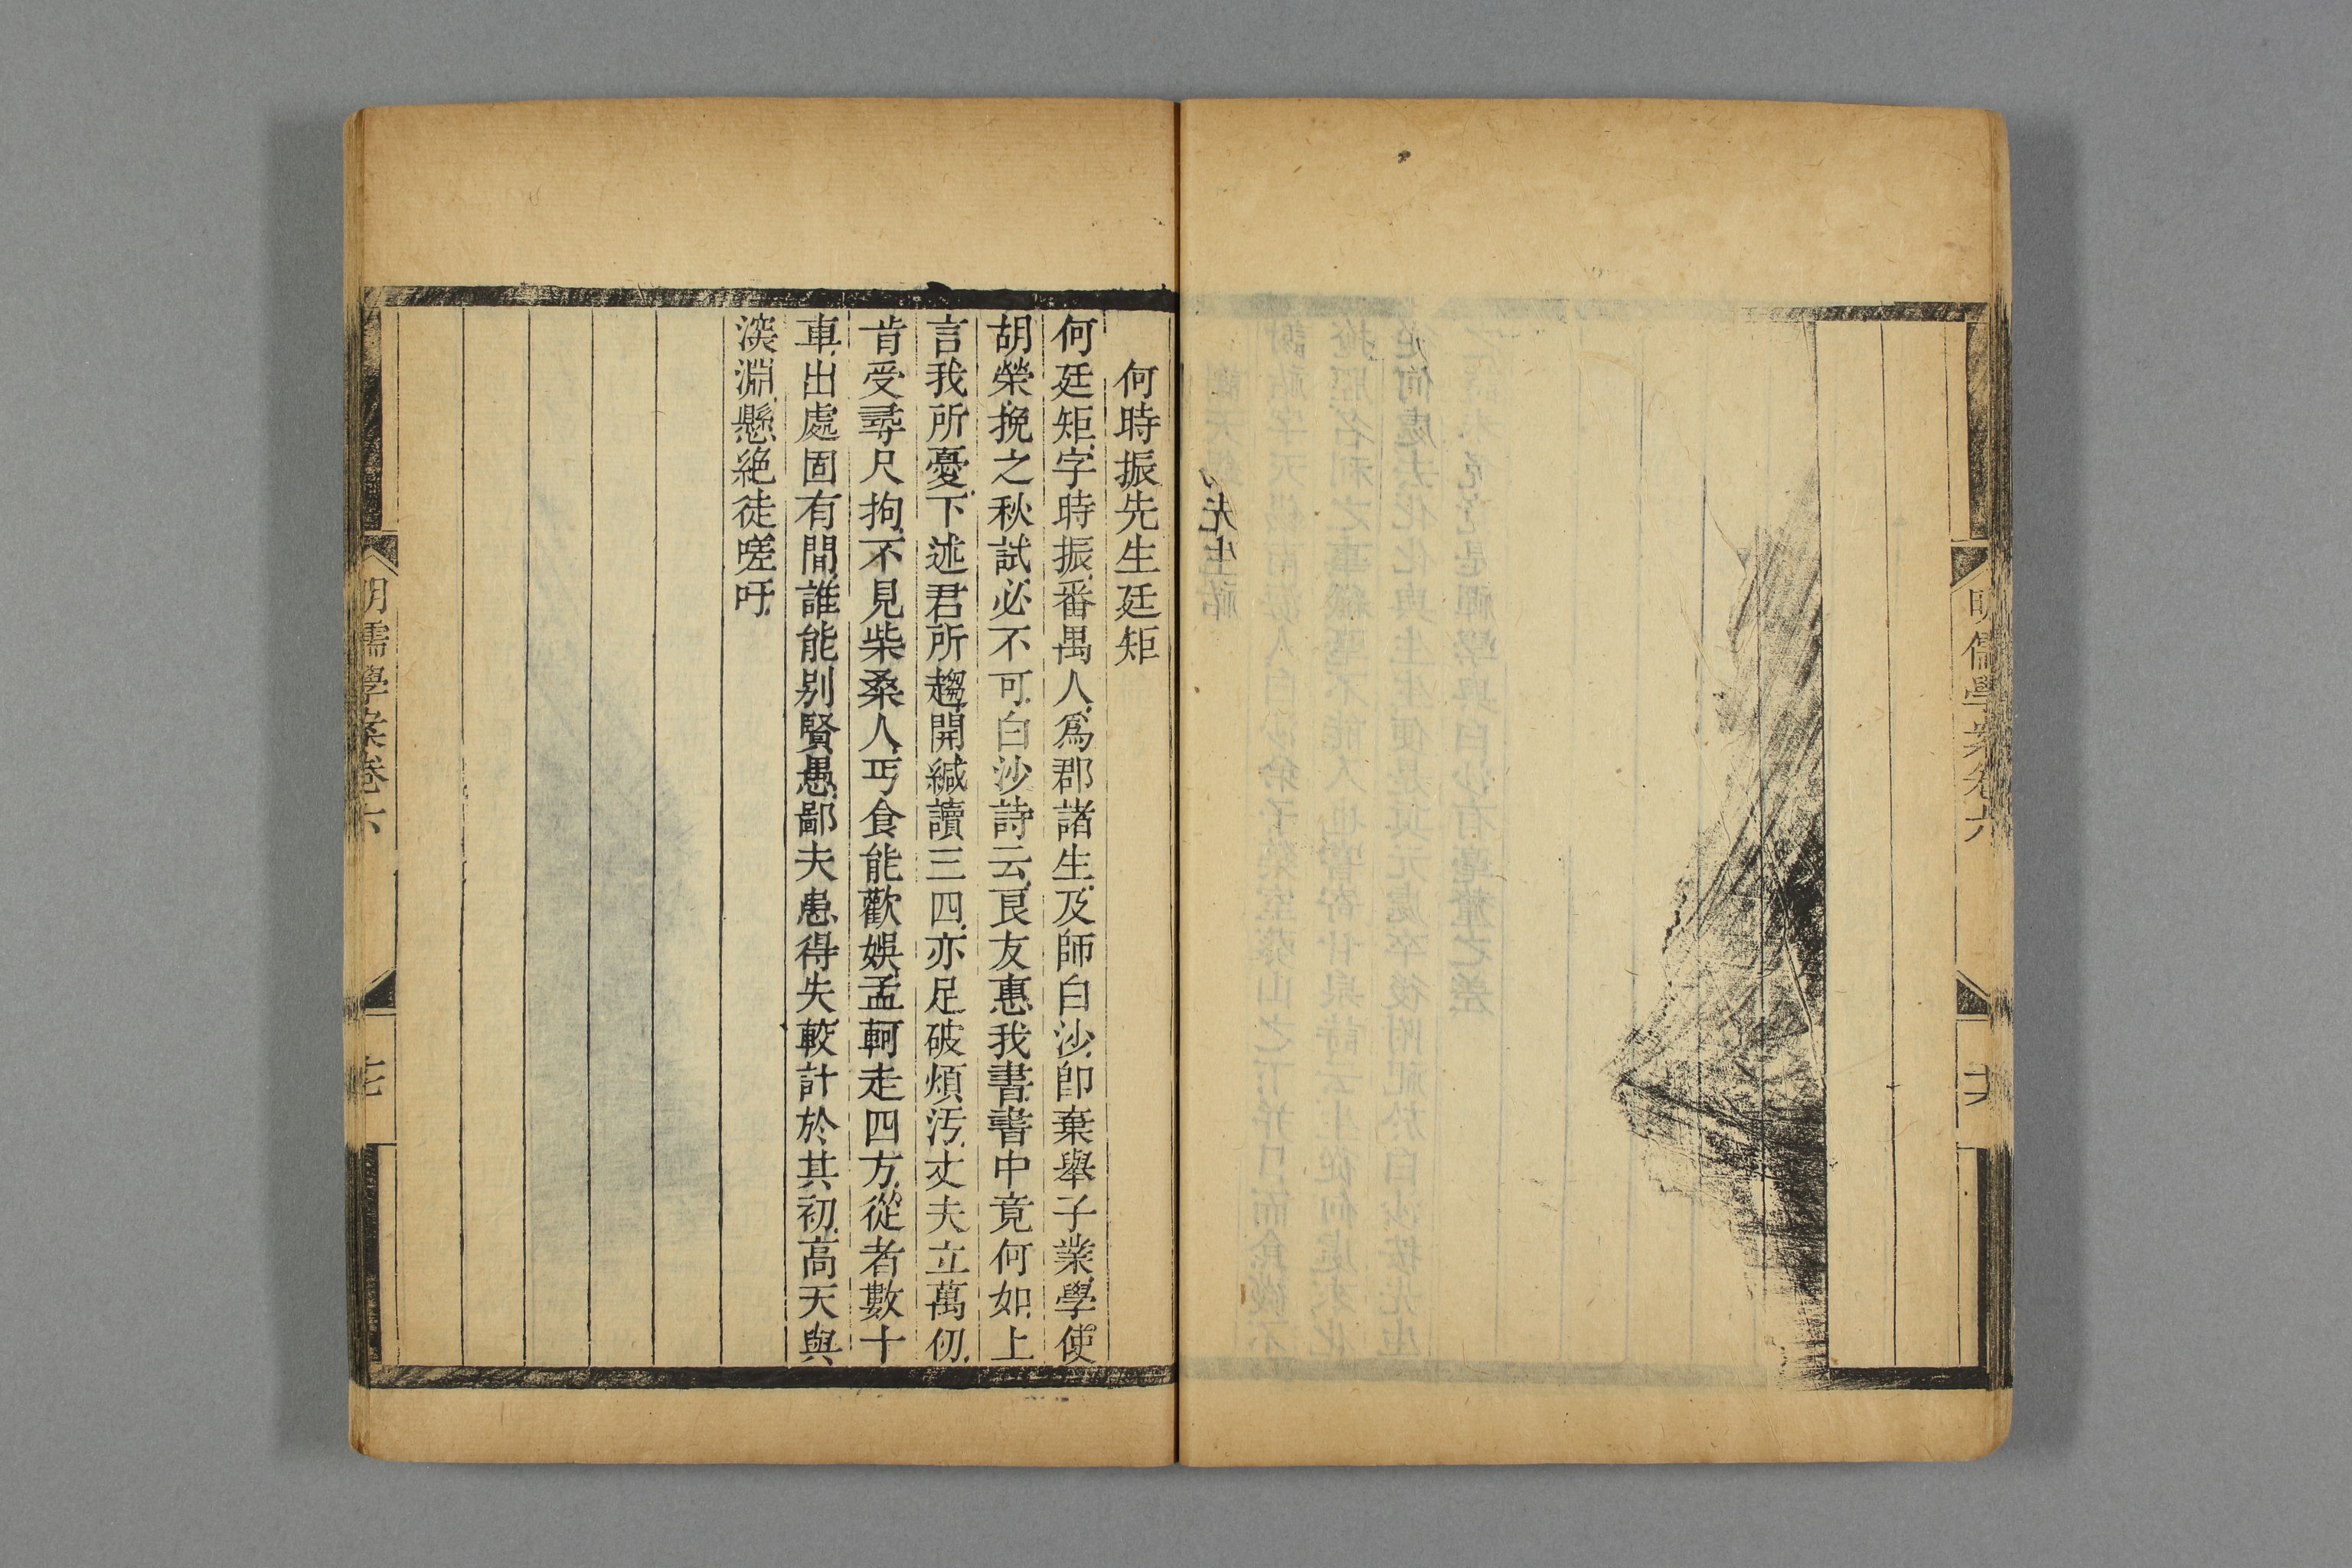 明儒學案卷六
何時振先生廷矩
何廷矩字時振番禺人爲郡諸生及師白沙卽棄舉子業學使
胡榮挽之秋試必不可白沙詩云良友惠我書書中竟何如上
言我所憂下述君所趨開緘讀三四亦足破煩汚丈夫立萬仞
肯受尋尺拘不見柴桑人丐食能歡娛孟軻走四方從者數十
車出處固有間誰能别賢愚鄙夫患得失較計於其初高天與
深淵懸絶徒嗟吁
明儒學案卷六